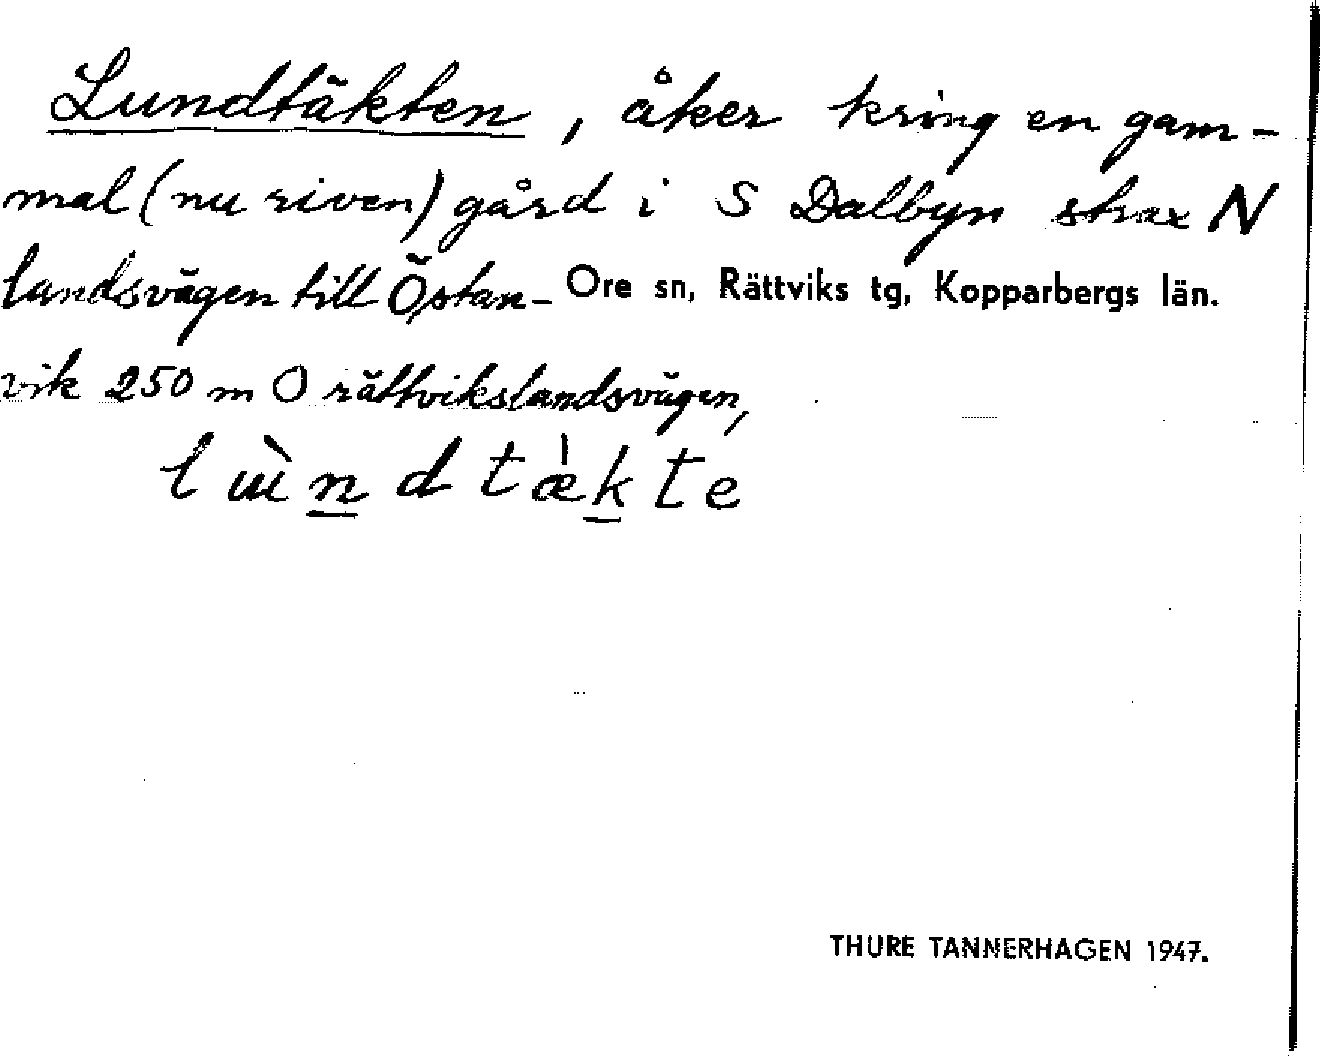 Lundtäkten, åker kring en gam-
mal (nu riven) gård i S Dalbyn strax N
landsvägen till Östan- Ore sn, Rättviks tg, Kopparbergs län.
vik 250 m O rättvikslandsvägen,
lùndtæ̀kte
THURE TANNERHAGEN 1947.